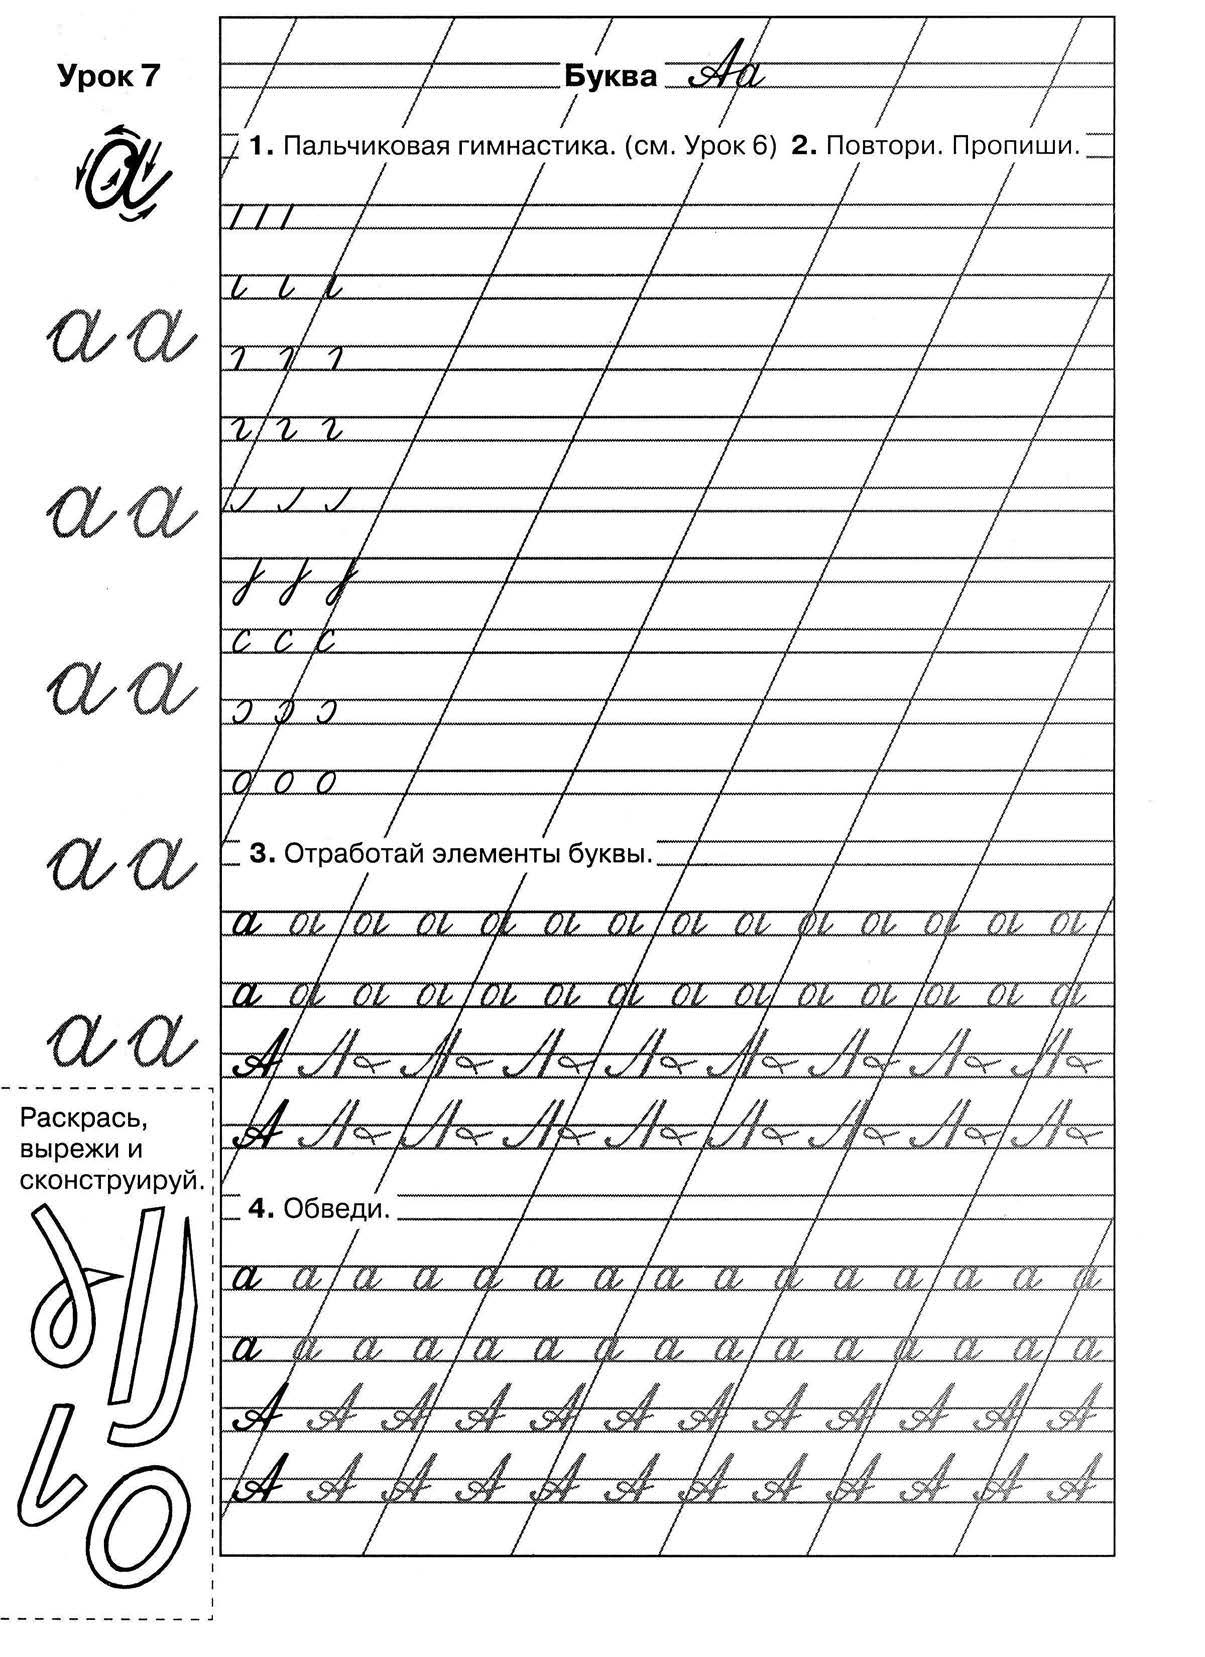 Урок 7
Буква Аа
1. Пальчиковая гимнастика. (см. Урок 6) 2. Повтори. Пропиши.
а
а а
а а
а а
а а
а а
с с с
о о о
3. Отработай элементы буквы.
а
а
А
А
4. Обведи.
а а а а а а а а а а а а а а а
а а а а а а а а а а а а а а а
А А А А А А А А А А А А
А А А А А А А А А А А А
Раскрась,
вырежи и
сконструируй.